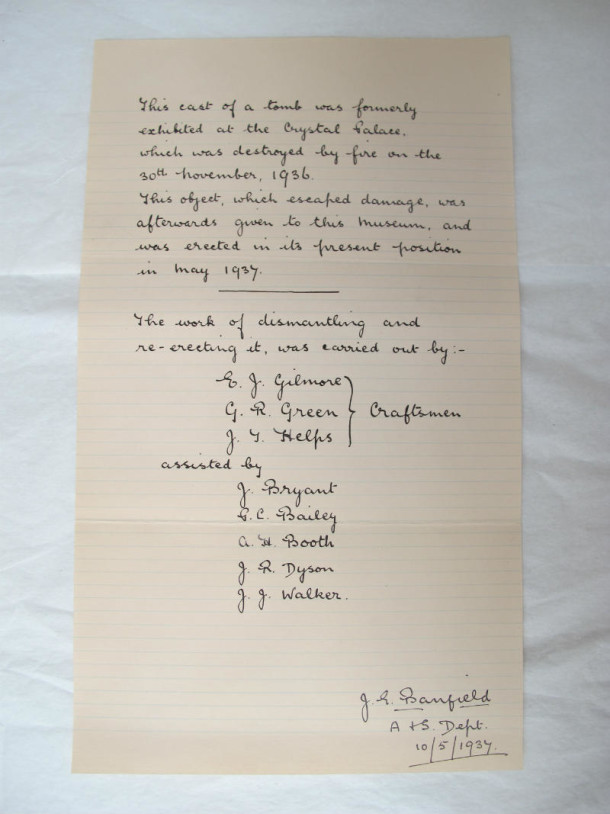 This cast of a tomb was formerly
exhibited at the Crystal Palace,
which was destroyed by fire on the
30th November, 1936.
This object, which escaped damage, was
afterwards given to this Museum, and
was erected in its present position
in May 1937.
The work of dismantling and
re-erecting it, was carried out by:-
E. J. Gilmore
G. R. Green } Craftsmen
J. T. Helps
assisted by
J. Bryant
C. Bailey
A. H. Booth
J. R. Dyson
J. J. Walker.
J. E. Banfield
A & S. Dept.
10/5/1937.